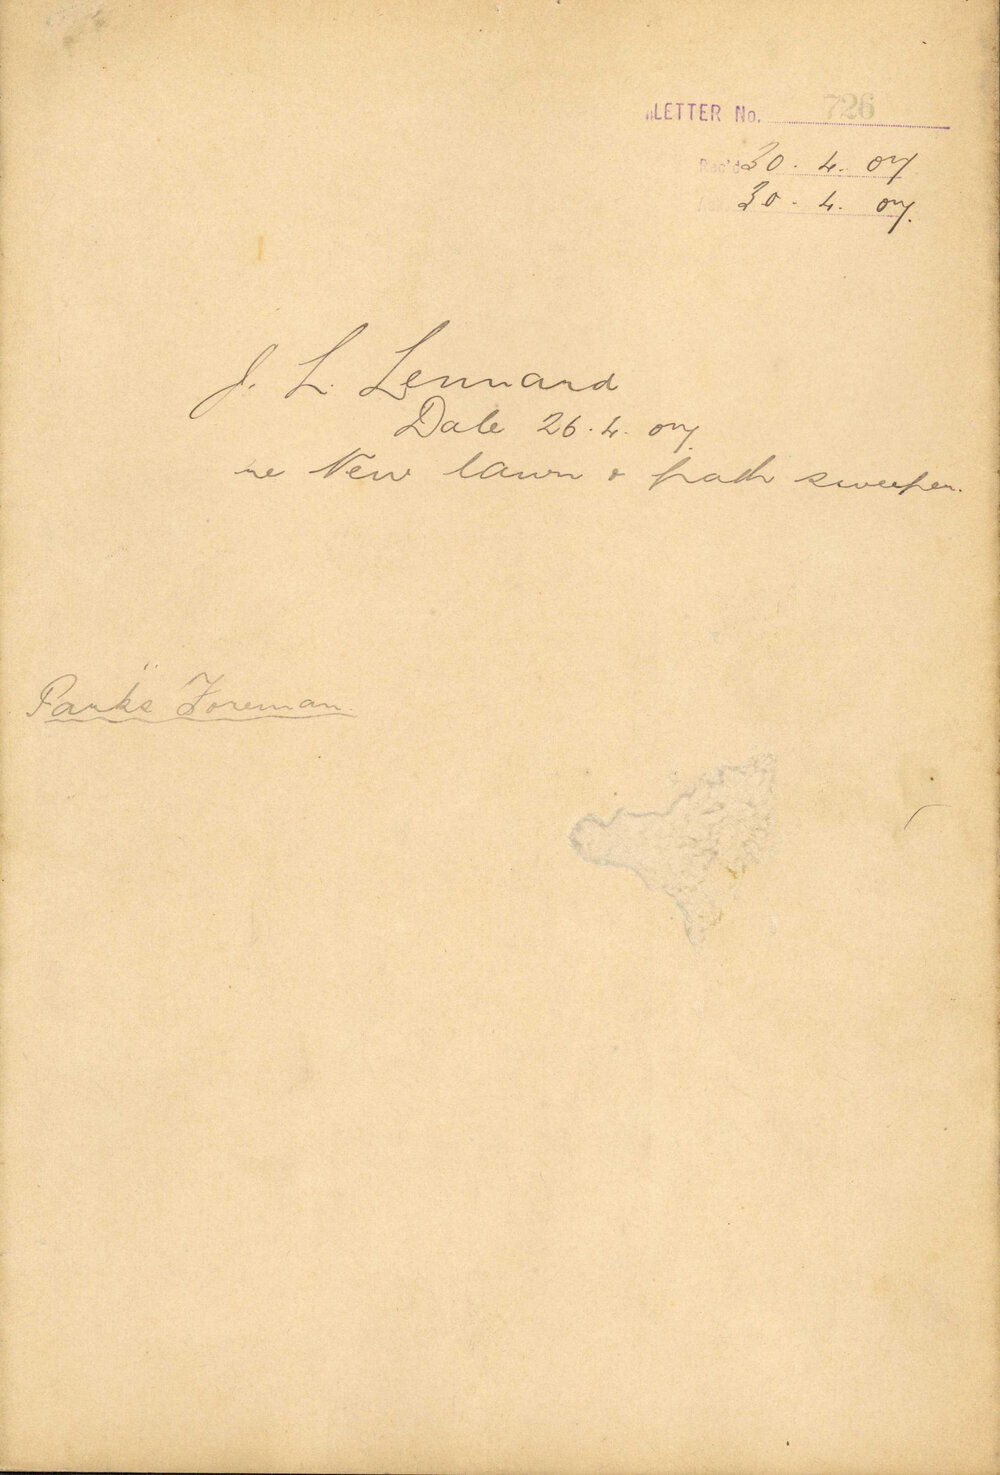 LETTER No. 726
Rec'd 30. 4. 07
30. 4. 07.
J. L. Lennard
Date 26. 4. 07.
re New lawn & path sweeper.
Parks Foreman.